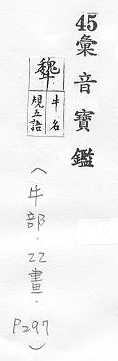 45彙音寶鑑
犩
牛名
規五語
(牛部.22畫.P297)